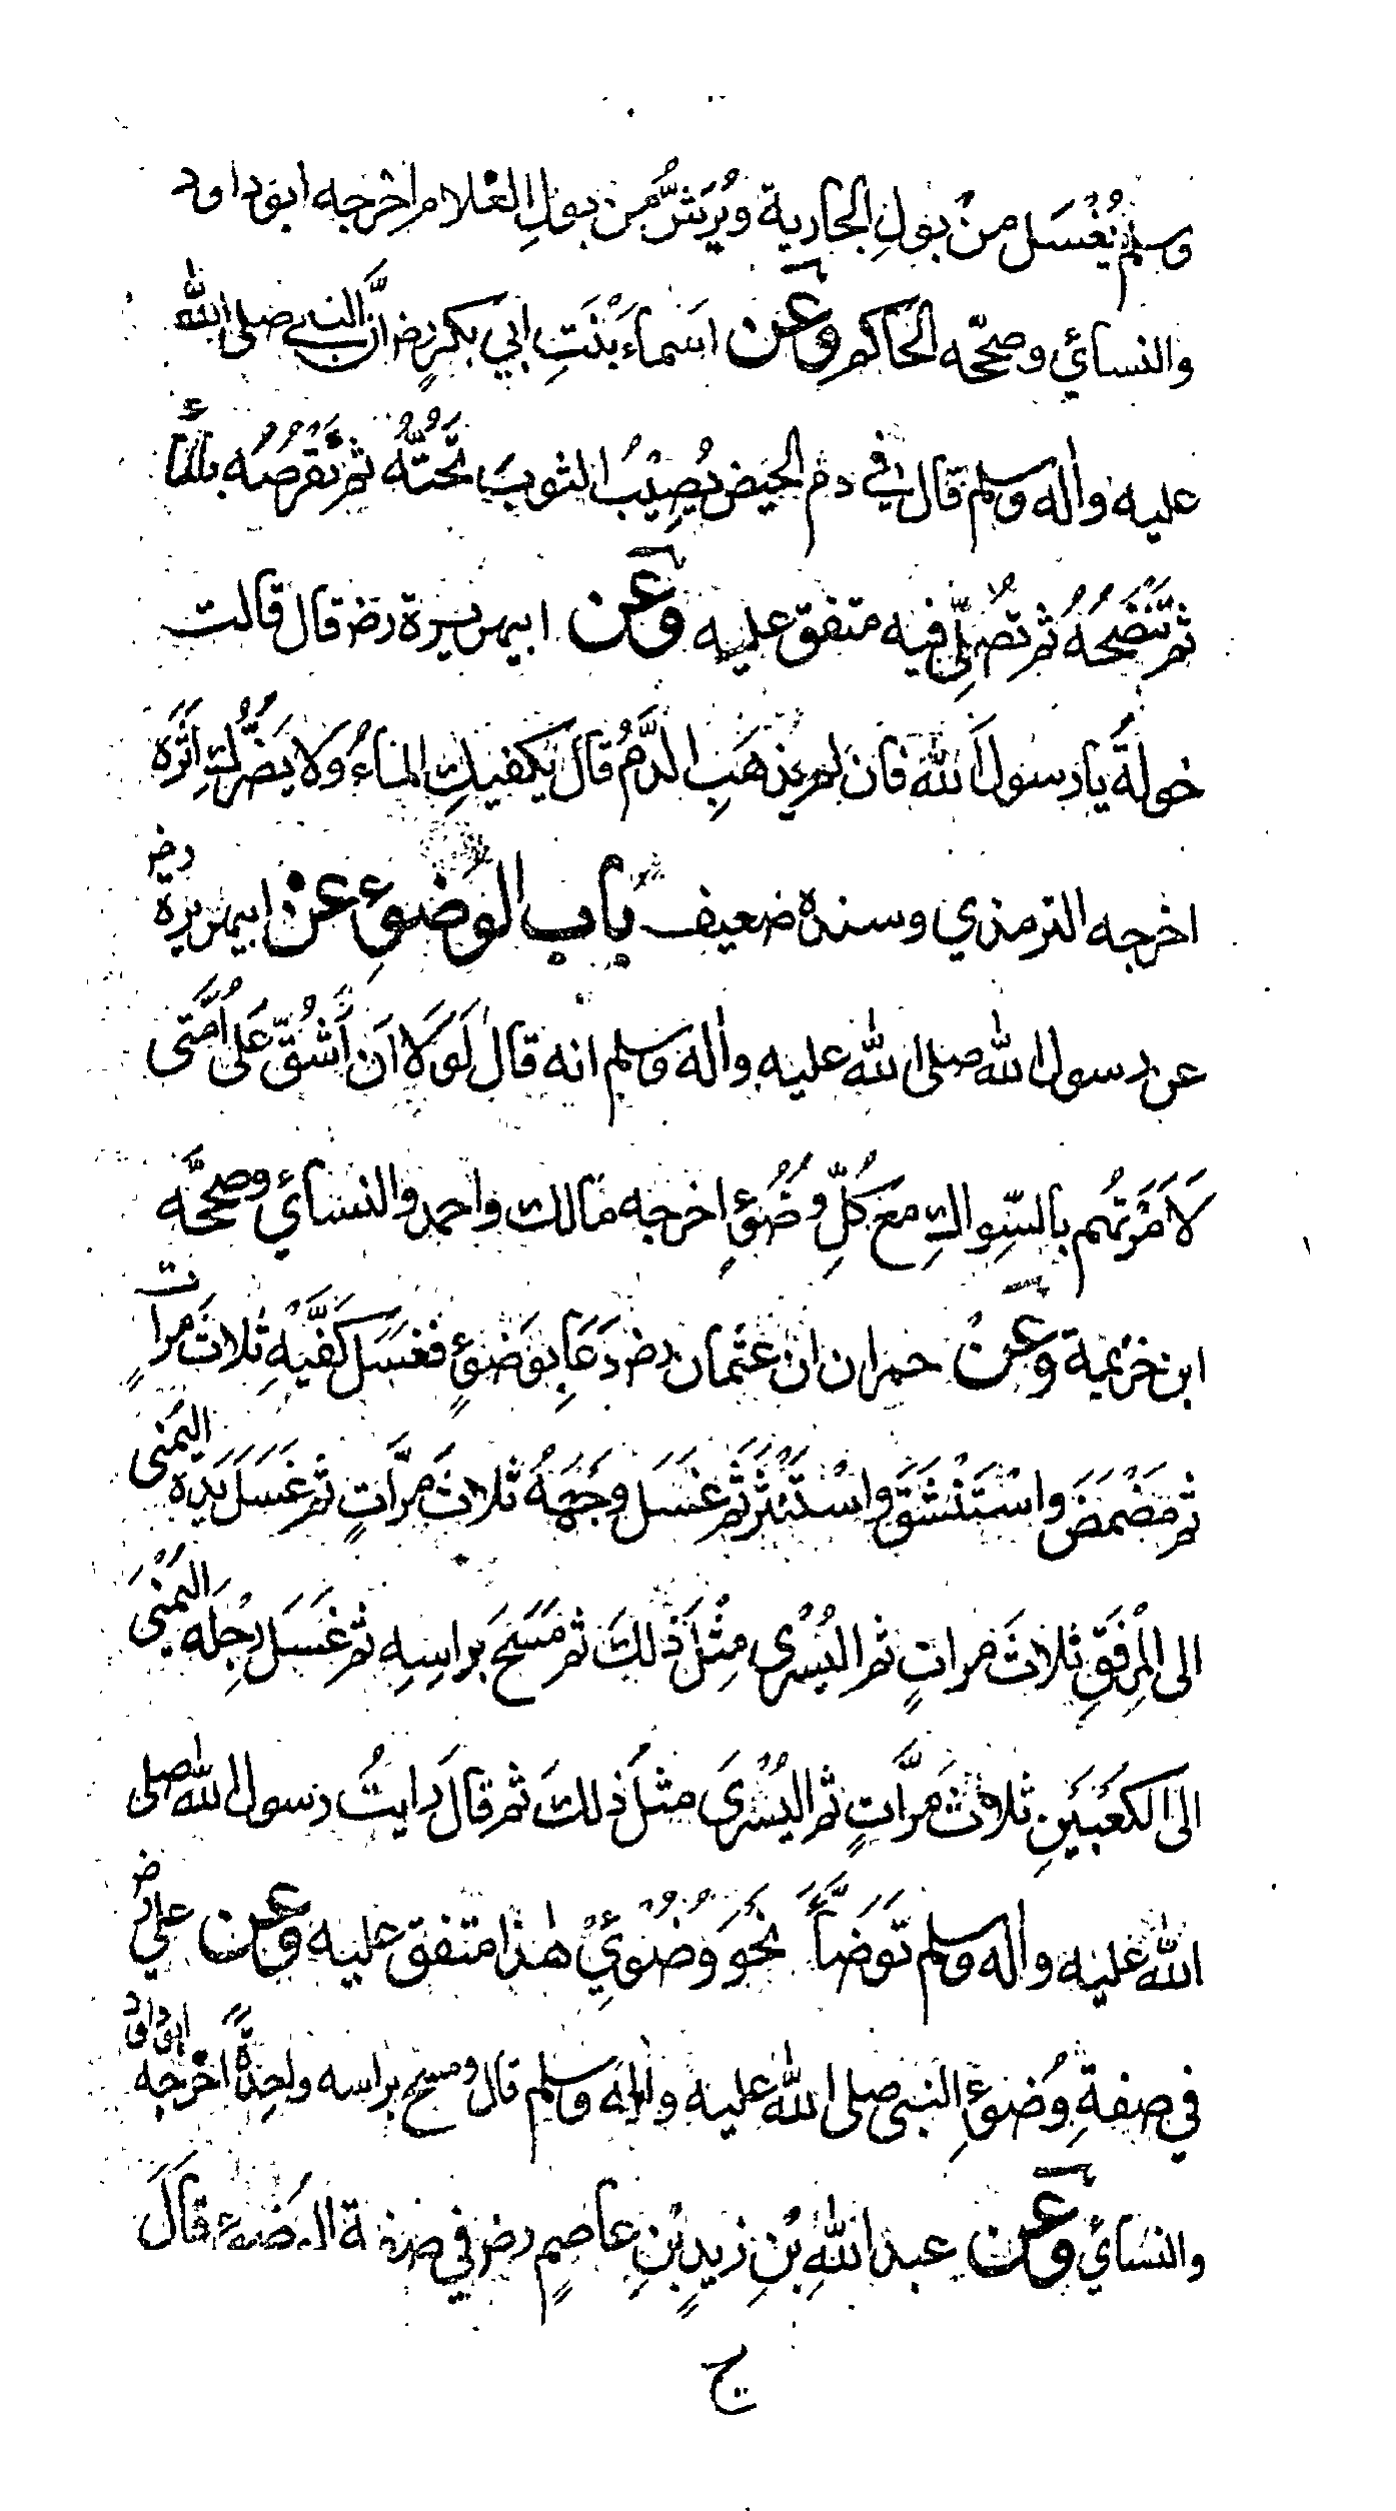 وسلم يُغْسَل من بولِ الجارية ويُرَشُّ من بولِ الغلام اخرجه ابوداود
والنسائي وصحّحه الحاكم وعن اسماءَ بنتِ ابي بكرٍ رض انَّ النبي صلى الله
عليه واله وسلم قال في دم الحيض يُصِيْبُ الثوبَ تَحُتُّهُ ثم تَقْرُصُهُ بالماء
ثم تَنْضَحُهُ ثم تُصَلِّي فيه متفق عليه وعن ابيهريرة رض قال قالت
خولةُ يا رسولَ الله فان لم يذهَبِ الدَّمُ قال يكفيكِ الماءُ وَلا يَضُرُّكِ اَثَرُه
اخرجه الترمذي وسنده ضعيف باب الوضوءِ عن ابيهريرة رض
عن رسول الله صلى الله عليه واله وسلم انه قال لَولَا اَن اَشُقَّ عَلى اُمَّتى
لَاَمَرْتُهم بالسِّواكِ مَعَ كُلِّ وُضُوءٍ اخرجه مالك واحمد والنسائي وصححَّه
ابن خزيمة وعنْ حمران ان عثمان رض دَعَا بِوَضوءٍ فغَسَل كَفَّيْهِ ثلاثَ مراتٍ
ثم مَضْمَضَ واسْتَنْشَقَ واسْتَنْثَرَ ثم غسَل وجَهَهُ ثلاثَ مَرَّاتٍ ثم غَسَلَ يَدَه اليُمْنى
الى المِرفَقِ ثلاثَ مراتٍ ثم اليُسْرى مِثْلَ ذلكَ ثم مَسَحَ براسِهِ ثم غَسَلَ رِجلَه اليُمْنىَ
الى الكعْبَيَنِ ثلاثَ مَرَّاتٍ ثم اليُسْرىَ مثلَ ذلكَ ثم قالَ رايتُ رسول الله صلى
الله عليه واله وسلم تَوَضَّأَ نحَوَ وُضُوْئِيْ هٰذا متفق عليه وعن علي رض
في صفةِ وُضوءِ النبى صلى الله عليه واله وسلم قال ومسح براسه واحِدةً اخرَجه ابوداود
والنسائي وعن عبد اللهِ بْنِ زيدِ بْنِ عاصمٍ رض في صفة الوضوء قالَ